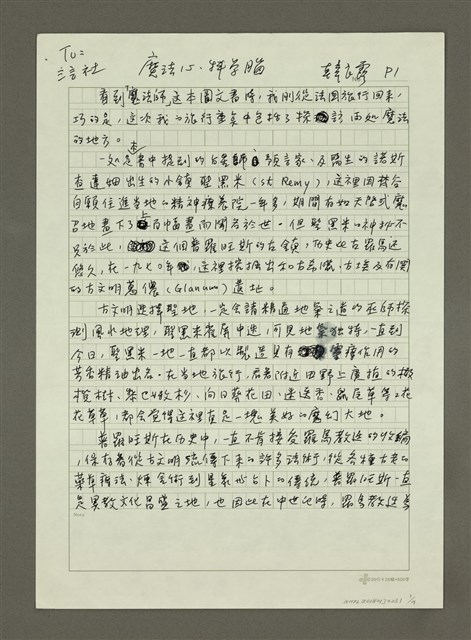 To:
三言社 魔法心.科學腦 韓良露 P1
看到「魔法師」這本圖文書時,我剛從法國旅行回來,
巧的是,這次我的旅行重點中包括了探訪兩処魔法
的地方。
一処是書中提到的占星師、預言家、及醫生的諾斯
查達姆出生的小鎮聖黑米(St Remy),這裡因梵谷
自願住進當地的精神療養院一年多,期間有如天啓式魔
召地畫下了上百幅畫而聞名於世。但聖黑米的神秘不
只於此,這個普羅旺斯的古鎮,歷史比古羅馬还
悠久,在一九七〇年,這裡挖掘出的古房儀、古塔及有関
的古文明葛儂(Glanum)遺地。
古文明選擇聖地,一定會請精通地氣之道的巫師探
測風水地理,聖黑米雀屏中选,可見地氣独特,一直到
今日,聖黑米一地一直都以製造具有療作用的
芳香精油出名。在当地旅行,看着附近田野上廣植的橄
欖樹、葉 杉、向日葵花田、迷迭香、鼠尾草等的花
花草草,都会覺得這裡真是一塊美好的魔幻大地。
普羅旺斯在歷史中,一直不肯接受羅馬教廷的收編
,保存着從古文明流傳下來的許多法術,從各種古老的
藥草療法、煉金術到星象占卜的傳統,普羅旺斯一直
是異教文化昌盛之地,也因此在中世紀時,羅馬教廷